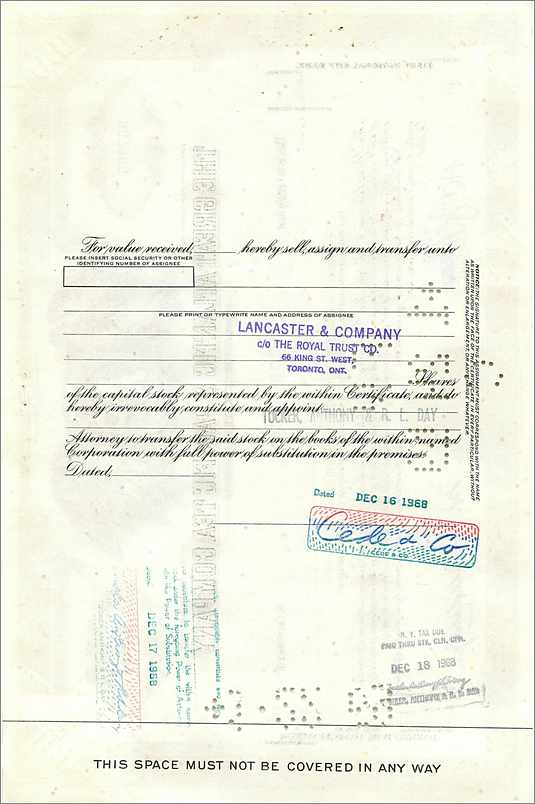 For value received, hereby sell, assign and transfer unto
PLEASE INSERT SOCIAL SECURITY OR OTHER
IDENTIFYING NUMBER OF ASSIGNEE
PLEASE PRINT OR TYPEWRITE NAME AND ADDRESS OF ASSIGNEE
LANCASTER & COMPANY
c/o THE ROYAL TRUST CO.
66 KING ST. WEST,
TORONTO, ONT.
Shares
of the capital stock represented by the within Certificate, and do
hereby irrevocably constitute and appoint
TUCKER, ANTHONY & R. L. DAY
Attorney to transfer the said stock on the books of the within named
Corporation with full power of substitution in the premises
Dated,
NOTICE: THE SIGNATURE TO THIS ASSIGNMENT MUST CORRESPOND WITH THE NAME
AS WRITTEN UPON THE FACE OF THE CERTIFICATE, IN EVERY PARTICULAR, WITHOUT
ALTERATION OR ENLARGEMENT, OR ANY CHANGE WHATEVER.
Dated DEC 16 1968
Cede & Co
CEDE & CO
DEC 17 1968
N. Y. TAX DUE
PAID THRU STK. CLR. CPN.
DEC 18 1968
TUCKER, ANTHONY & R. L. DAY
THIS SPACE MUST NOT BE COVERED IN ANY WAY